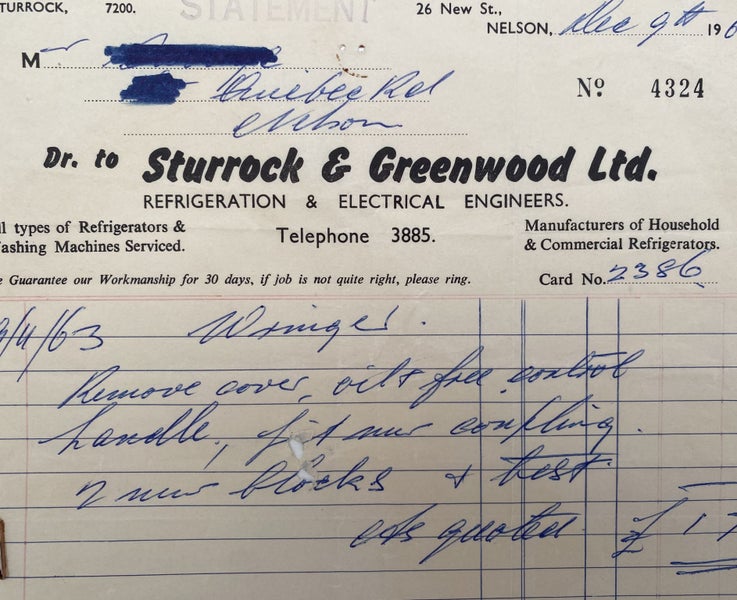 TURROCK, 7200. STATEMENT 26 New St.,
NELSON, Dec 9th 196
M
Quebec Rd Nº 4324
Nelson
Dr. to Sturrock & Greenwood Ltd.
REFRIGERATION & ELECTRICAL ENGINEERS.
ll types of Refrigerators & Manufacturers of Household
ashing Machines Serviced. Telephone 3885. & Commercial Refrigerators.
e Guarantee our Workmanship for 30 days, if job is not quite right, please ring. Card No. 2386
/4/63 Wringer.
Remove cover, oil & free control
handle, fit new coupling.
2 new blocks & test.
As quoted £ 17